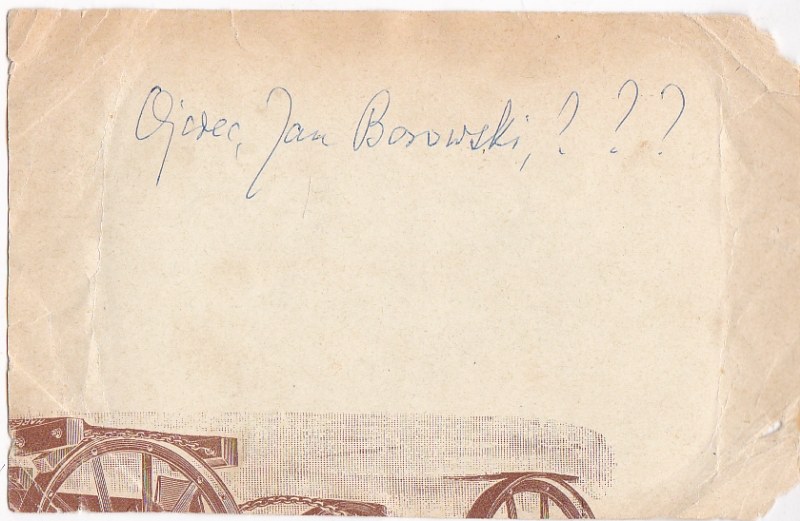 Ojciec, Jan Borowski, ? ? ?